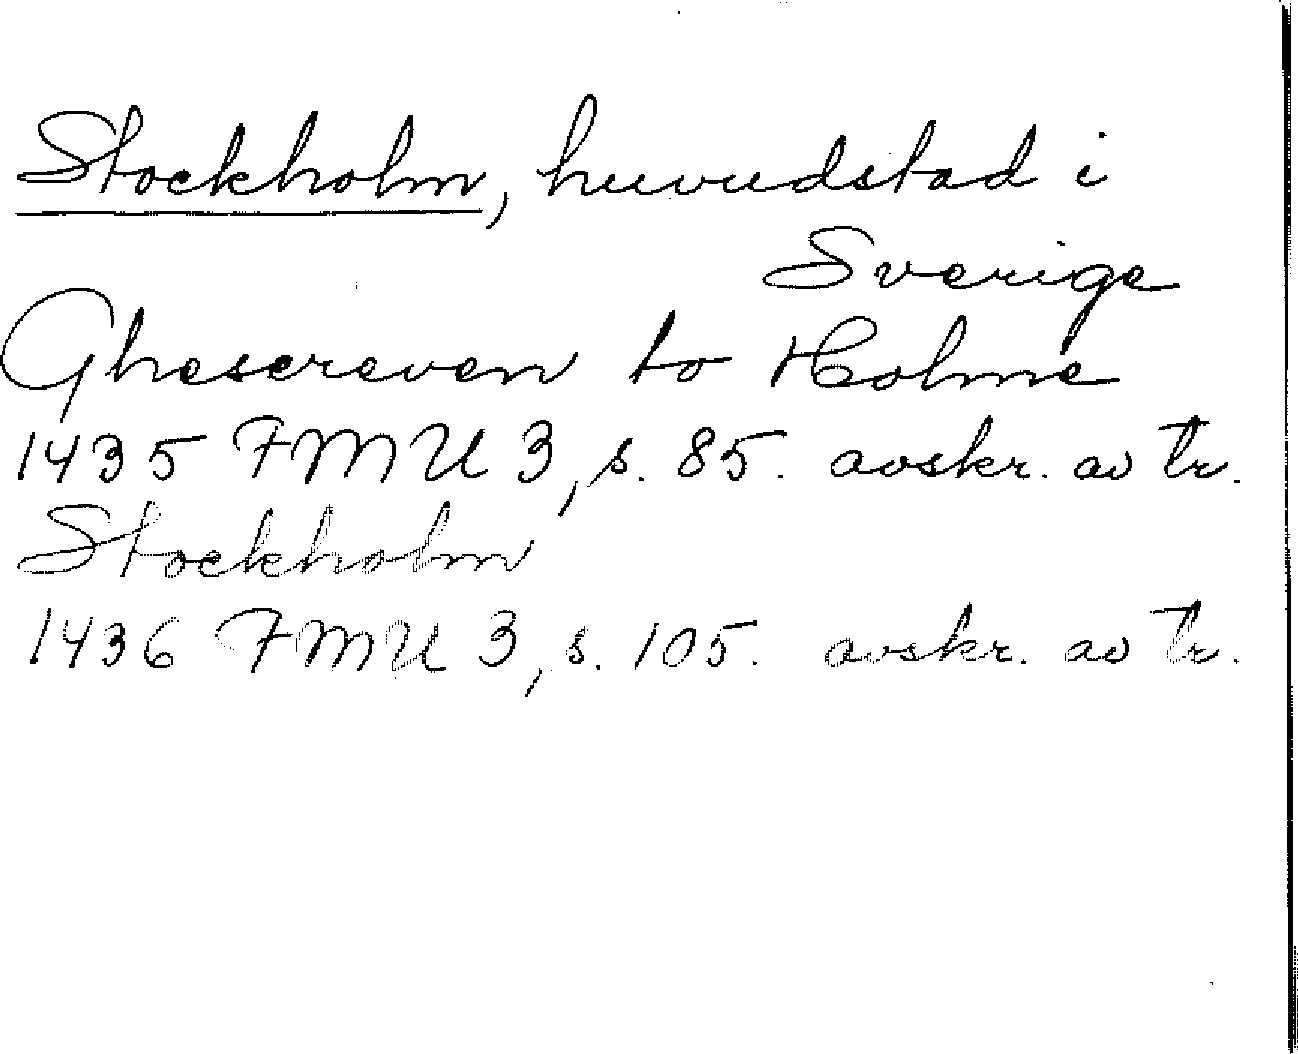 Stockholm, huvudstad i
Sverige
Ghescreven to Holme
1435 FMU 3, s. 85. avskr. av tr.
Stockholm
1436 FMU 3, s. 105. avskr. av tr.